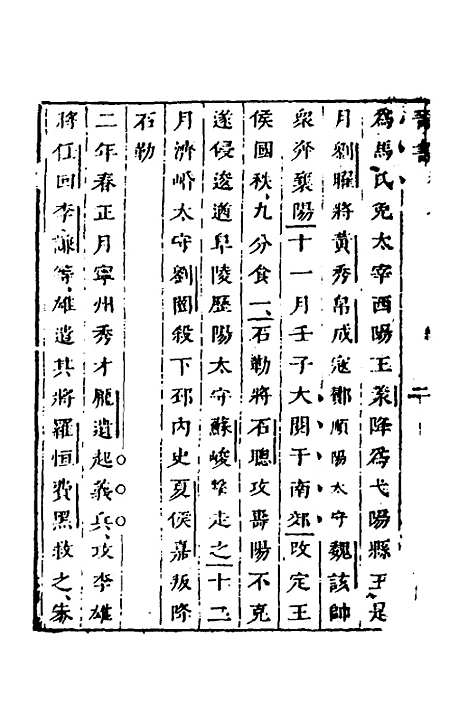 爲馬氏免太宰西陽王羕降爲弋陽縣王是
月劉曜將黃秀帛成寇酇順陽太守魏該帥
衆奔襄陽十一月壬子大閱于南郊改定王
侯國秩九分食一石勒將石聰攻壽陽不克
遂侵逡遒阜陵歷陽太守蘇峻擊走之十二
月濟岷太守劉闓殺下邳內史夏侯嘉叛降
石勒
二年春正月寧州秀才龐遺起義兵攻李雄
將任回李謙等雄遣其將羅恒費黑救之